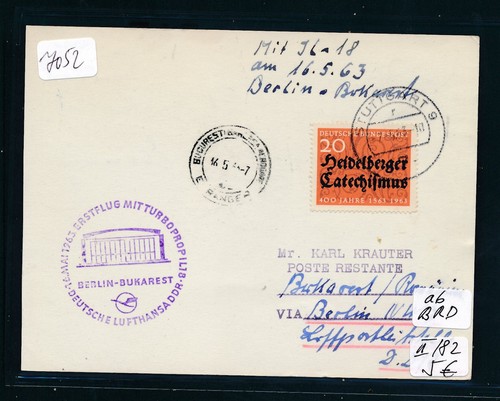 7052
Mit IL-18
am 16.5.63
Berlin - Bukarest
STUTTGART 9
DEUTSCHE BUNDESPOST
20
Heidelberger
Catechismus
400 JAHRE 1563 1963
BUCURESTI
16.5
16. MAI 1963 ERSTFLUG MIT TURBOPROP IL 18
BERLIN-BUKAREST
DEUTSCHE LUFTHANSA DDR
Mr. KARL KRAUTER
POSTE RESTANTE
Bukarest /
VIA Berlin
Luftpostleitstelle
ab
BRD
II/82
5 €